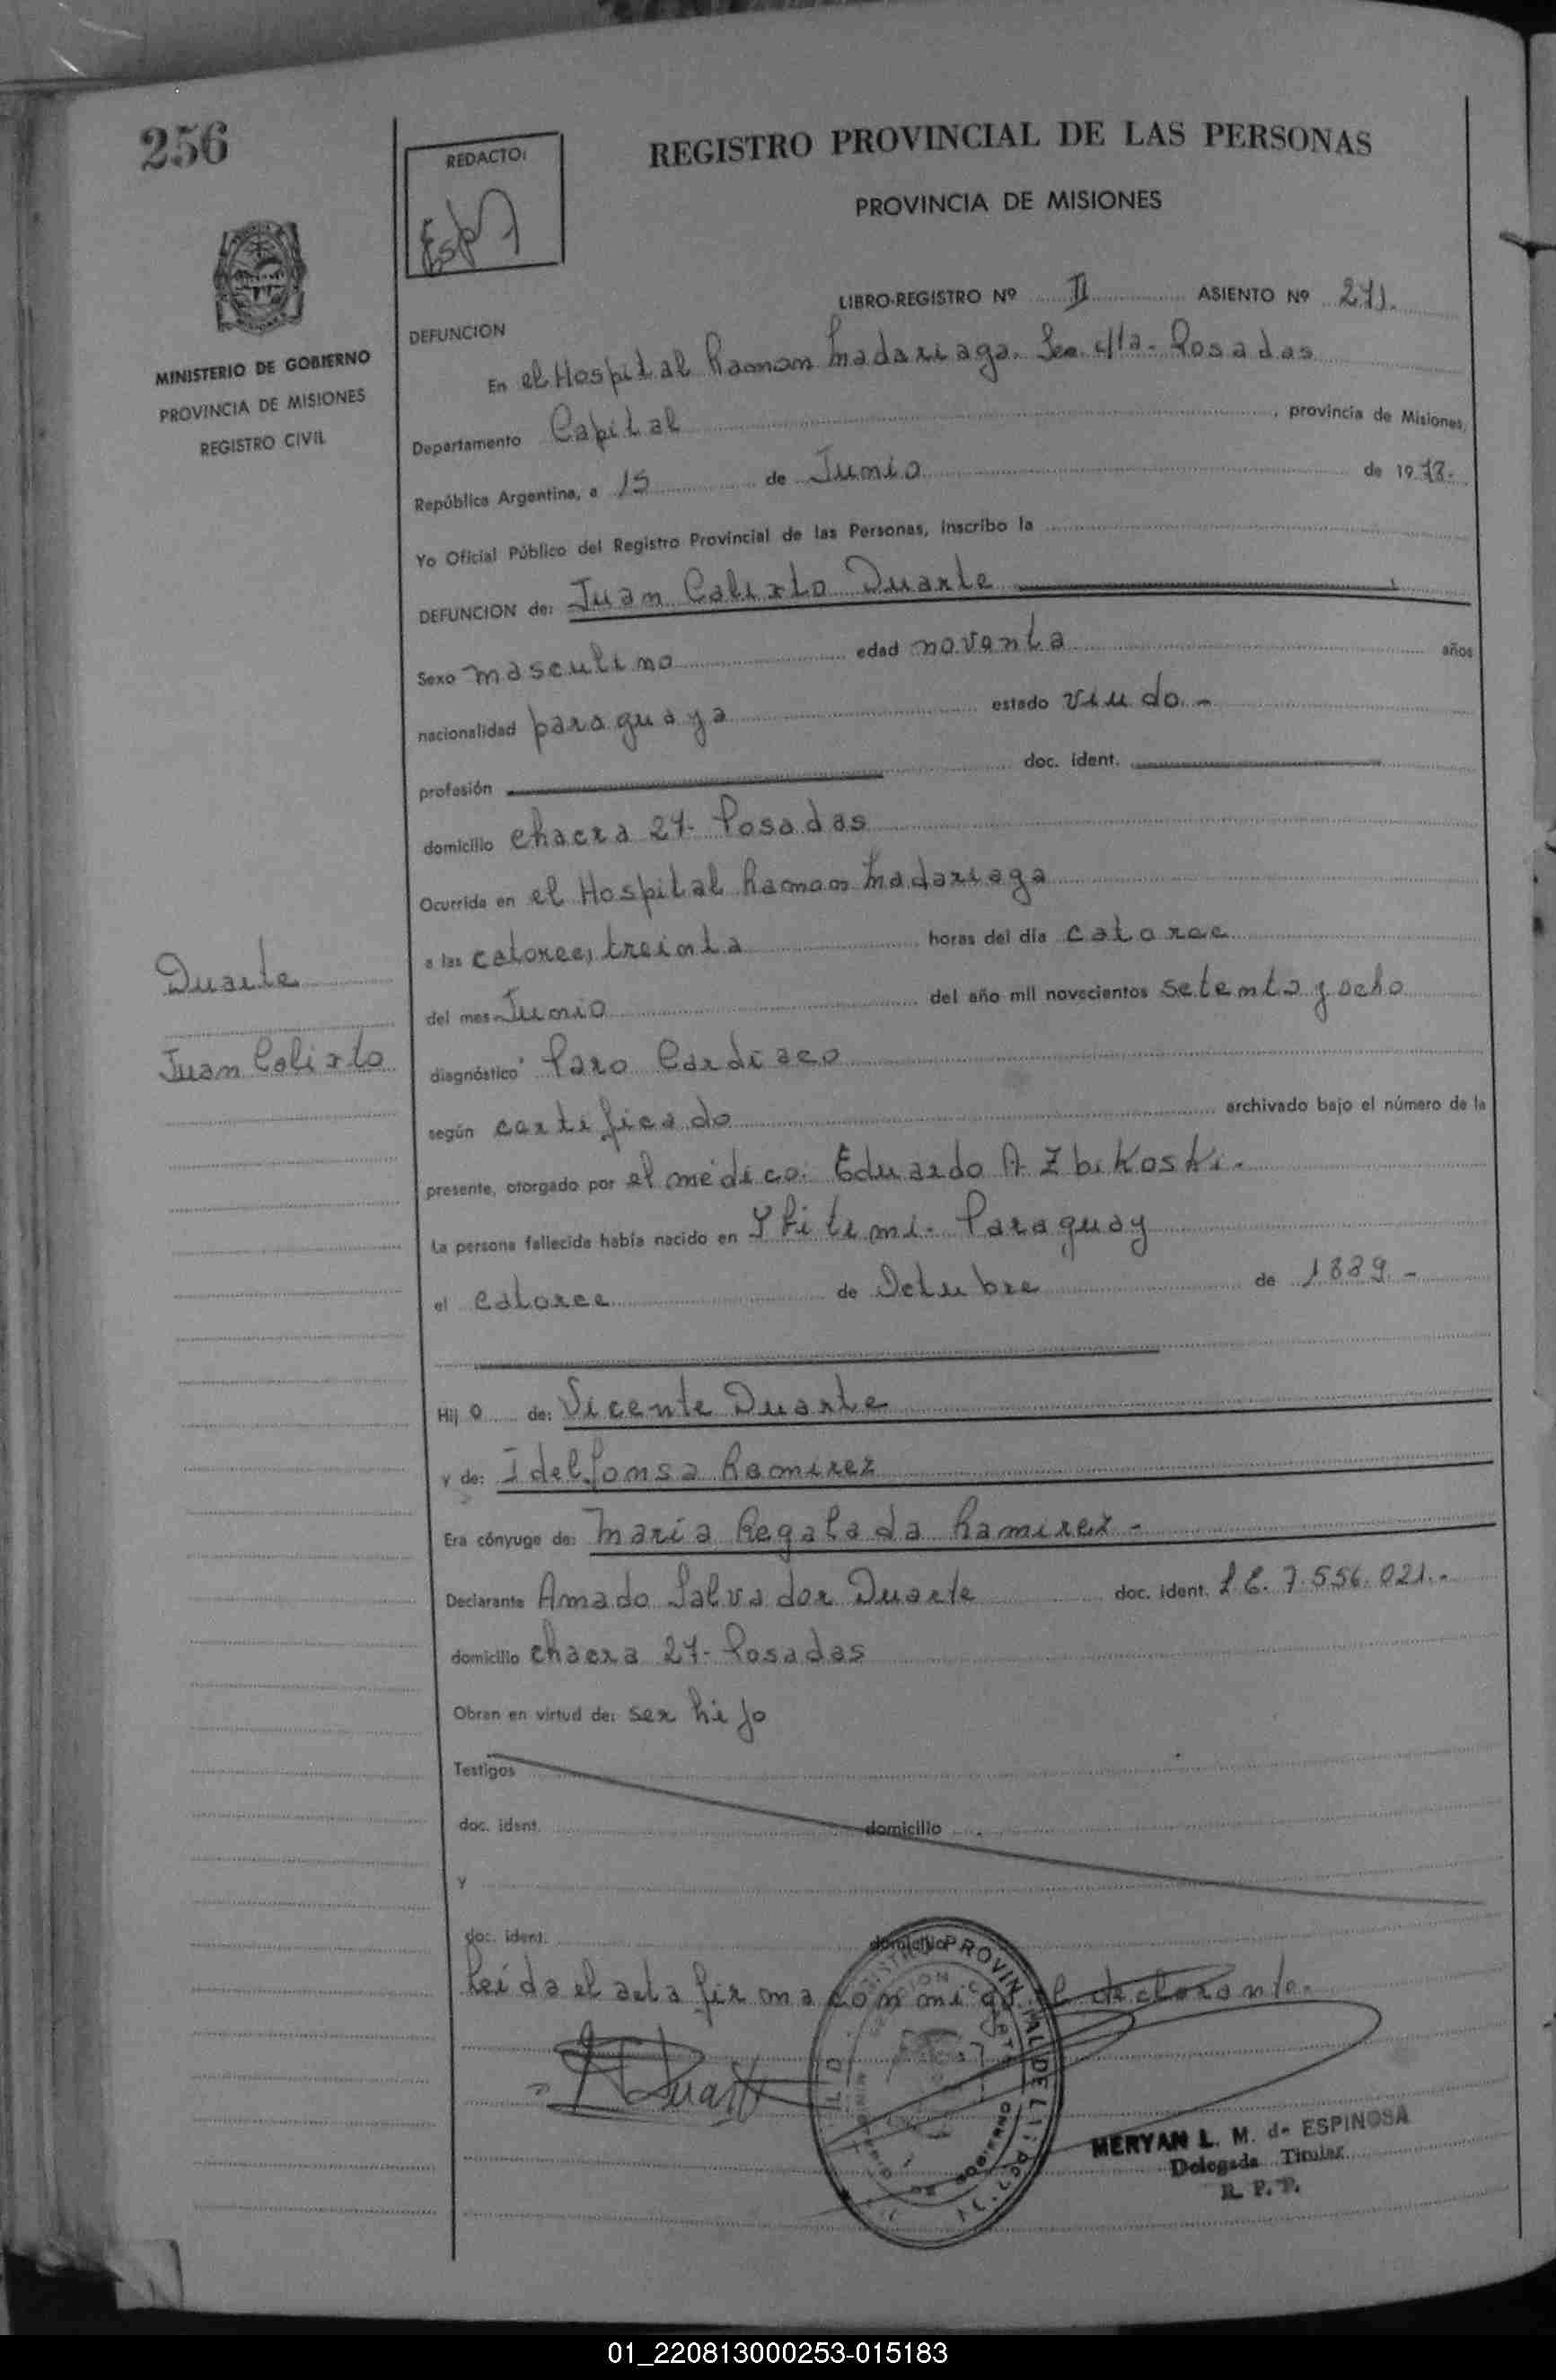 256
REDACTO:
REGISTRO PROVINCIAL DE LAS PERSONAS
PROVINCIA DE MISIONES
LIBRO-REGISTRO Nº II ASIENTO Nº 271.
MINISTERIO DE GOBIERNO
PROVINCIA DE MISIONES
REGISTRO CIVIL
DEFUNCION
En el Hospital Ramon Madariaga. Sec. 4ta. Posadas
Departamento Capital, provincia de Misiones,
República Argentina, a 15 de Junio de 1978.
Yo Oficial Público del Registro Provincial de las Personas, inscribo la
DEFUNCION de: Juan Calixto Duarte
Sexo masculino edad noventa años
nacionalidad paraguaya estado viudo.-
profesión doc. ident.
domicilio chacra 27- Posadas
Ocurrida en el Hospital Ramon Madariaga
a las catorce, treinta horas del día catorce
del mes Junio del año mil novecientos setenta y ocho
diagnóstico Paro Cardiaco
según certificado archivado bajo el número de la
presente, otorgado por el médico: Eduardo A. Zbikoski.
La persona fallecida había nacido en Paraguay
el catorce de Octubre de 1889.-
Hijo de: Vicente Duarte
y de: Idelfonsa Ramirez
Era cónyuge de: María Regalada Ramirez -
Declarante Amado Salvador Duarte doc. ident. L E. 7.556.021.-
domicilio chacra 27- Posadas
Obran en virtud de: ser hijo
Testigos
doc. ident. domicilio
y
doc. ident. domicilio
Leída el acta firma conmigo el declarante.
Duarte
Juan Calixto
MERYAN L. M. de ESPINOSA
Delegada Titular
R. P. P.
01_220813000253-015183